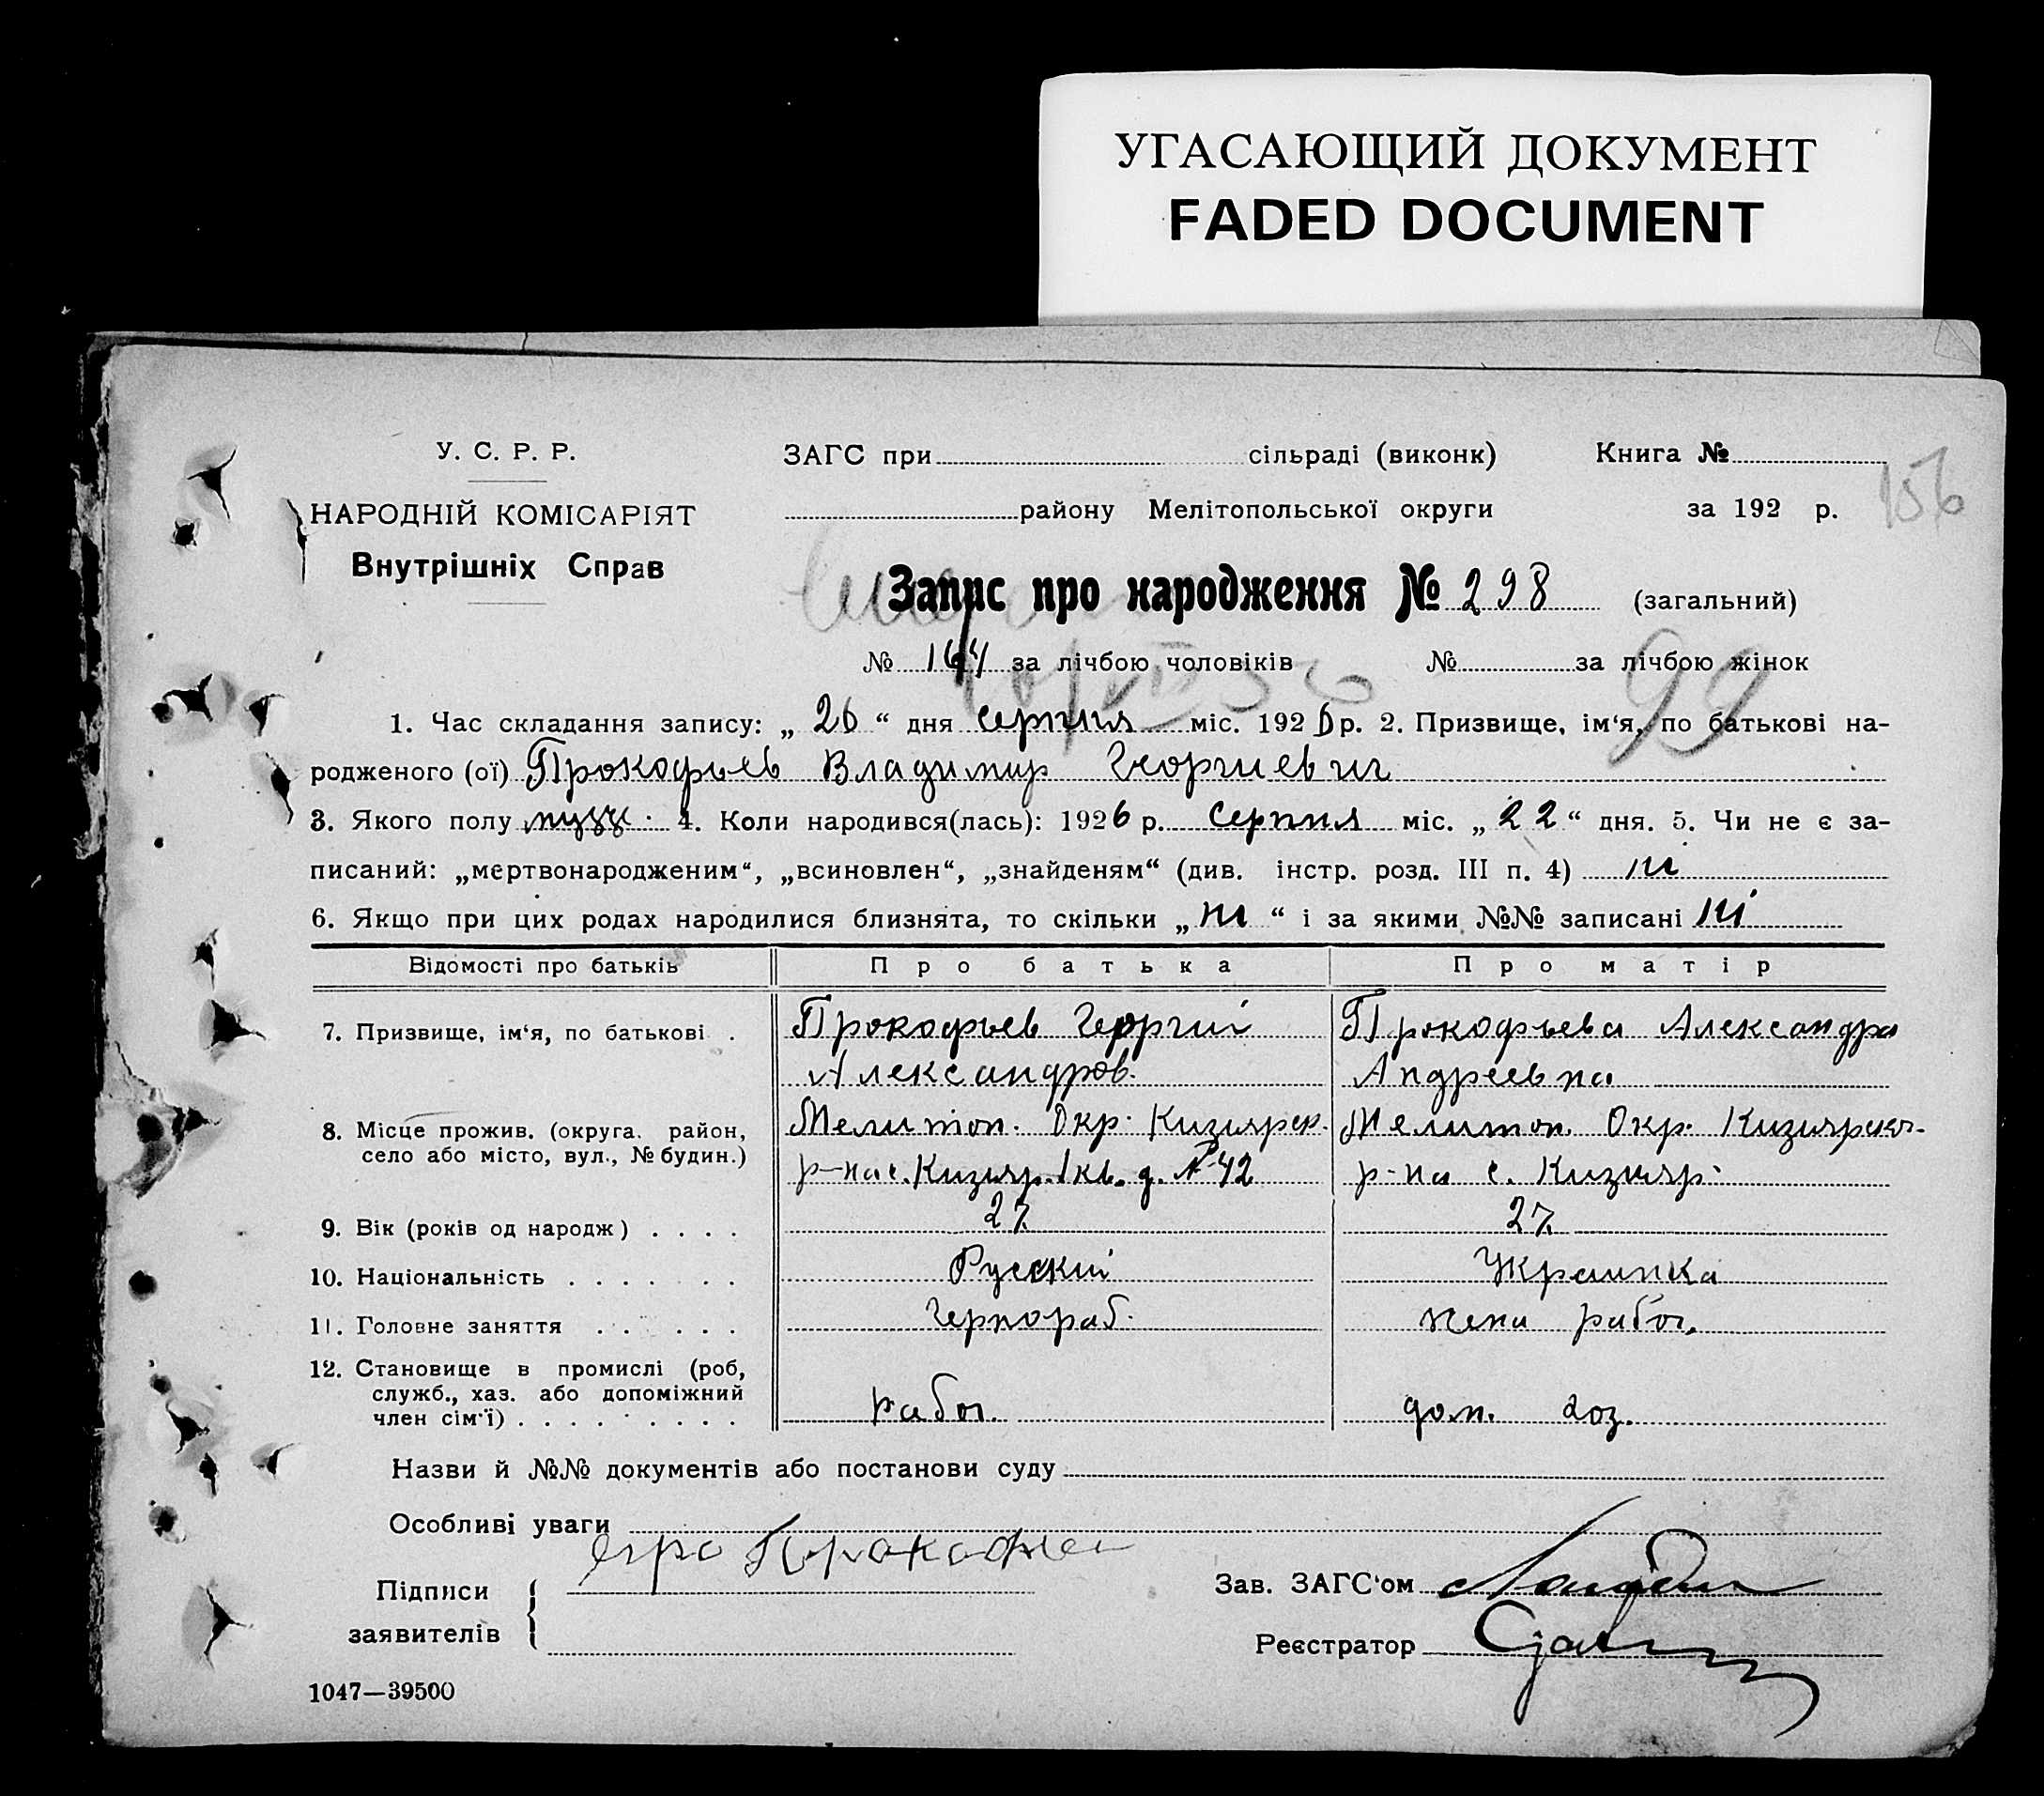 УГАСАЮЩИЙ ДОКУМЕНТ
FADED DOCUMENT
У. С. Р. Р.
НАРОДНІЙ КОМІСАРІЯТ
Внутрішніх Справ
ЗАГС при сільраді (виконк) Книга №
району Мелітопольської округи за 192 р.
156
Запис про народження № 298 (загальний)
№ 164 за лічбою чоловіків № за лічбою жінок
99
1. Час складання запису: „ 26 “ дня серпня міс. 1926 р. 2. Призвище, ім‘я, по батькові на-
родженого (ої) Прокофьев Владимир Георгиевич
3. Якого полу муж. 4. Коли народився(лась): 1926 р. Серпня міс. „ 22 “ дня. 5. Чи не є за-
писаний: „мертвонародженим“, „всиновлен“, „знайденям“ (див. інстр. розд. III п. 4) ні
6. Якщо при цих родах народилися близнята, то скільки „ ні “ і за якими №№ записані ні
Відомості про батьків Про батька Про матір
7. Призвище, ім‘я, по батькові . Прокофьев Георгий Прокофьева Александра
Александров. Андреевна
8. Місце прожив. (округа. район, Мелитоп. Окр. Кизиярск. Мелитоп. Окр. Кизиярског.
село або місто, вул., № будин.) р-на с. Кизияр. 1 кв. д. № 42 р-на с. Кизияр.
9. Вік (років од народж) . . . . 27. 27.
10. Національність . . . . . . . Русский Украинка
11. Головне заняття . . . . . . Чернораб. жена рабоч.
12. Становище в промислі (роб,
служб., хаз. або допоміжний
член сім‘ї) . . . . . . . . . рабоч. дом. хоз.
Назви й №№ документів або постанови суду
Особливі уваги
Підписи
заявителів
Зав. ЗАГС‘ом
Реєстратор
1047—39500